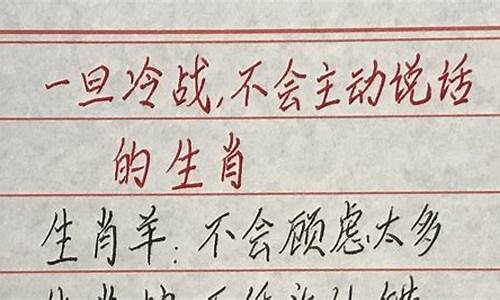 一旦冷战，不会主动说话
的生肖
生肖羊：不会顾虑太多